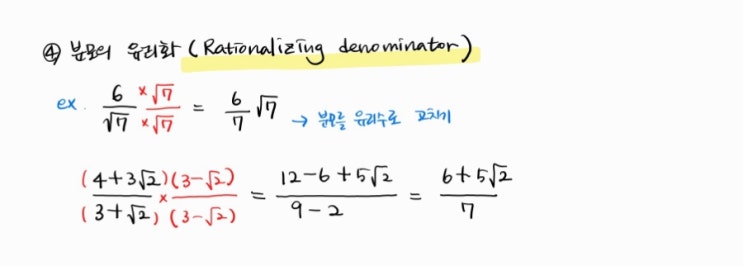 ④ 분모의 유리화 (Rationalizing denominator)
ex. 6/√7 ×√7/×√7 = 6/7 √7 → 분모를 유리수로 고치기
(4+3√2)(3-√2)/(3+√2)×(3-√2) = 12-6+5√2/9-2 = 6+5√2/7